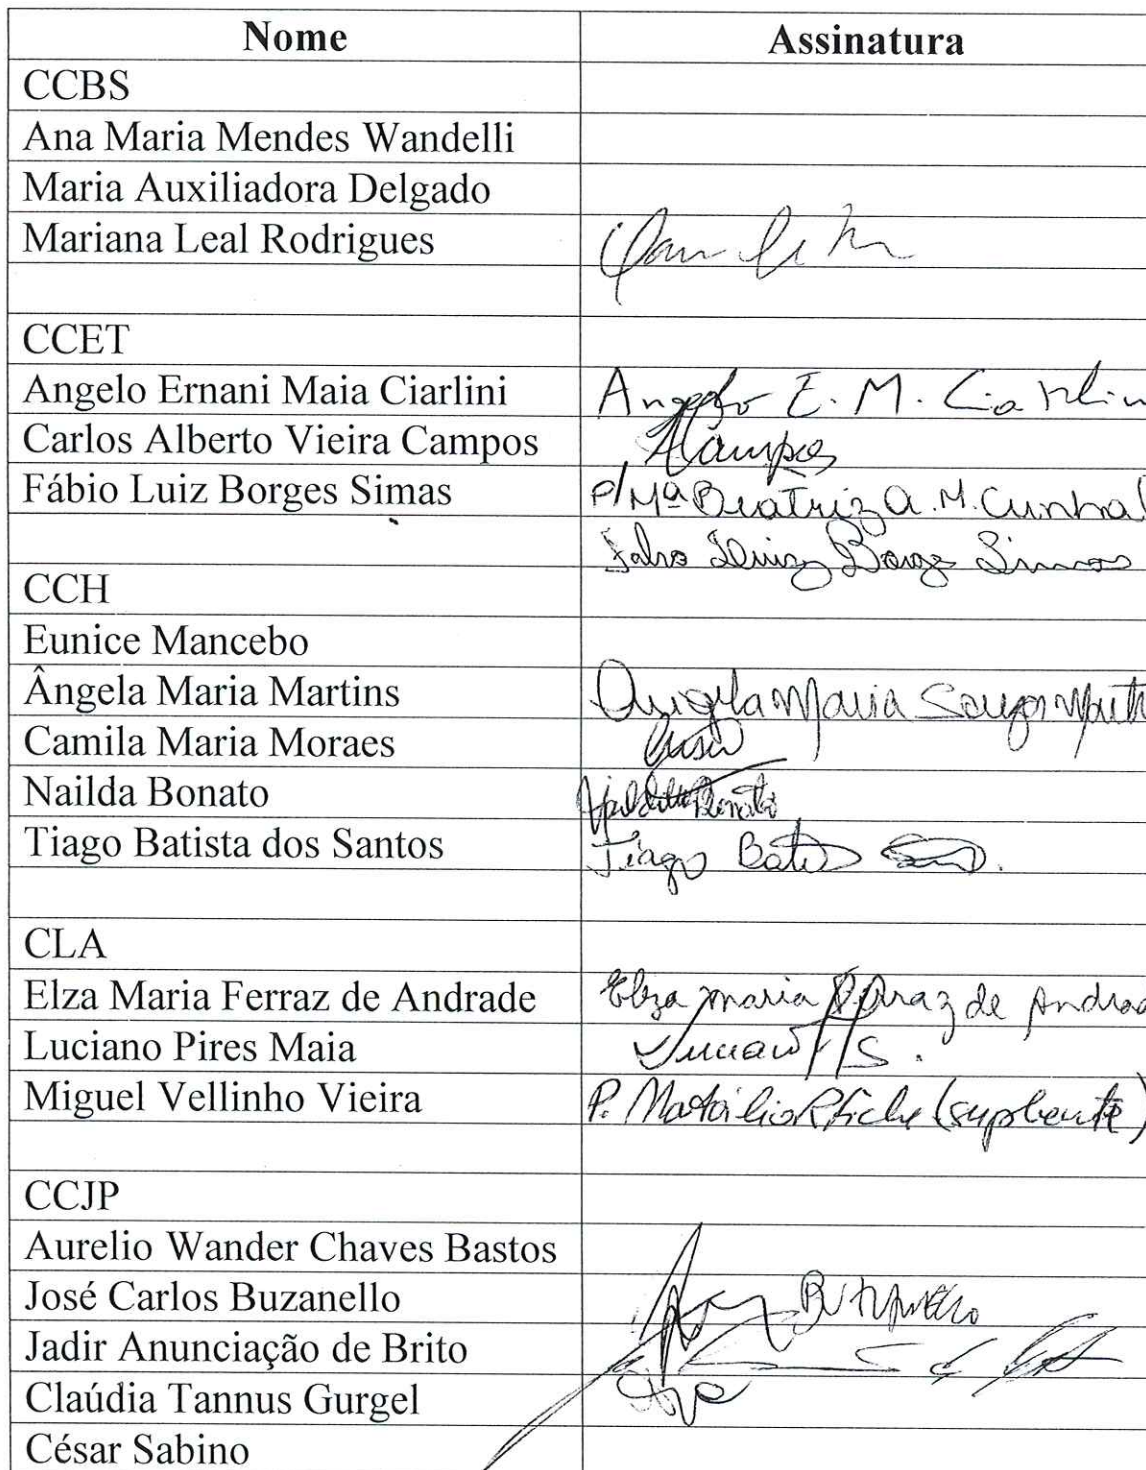 Nome Assinatura
CCBS
Ana Maria Mendes Wandelli
Maria Auxiliadora Delgado
Mariana Leal Rodrigues
CCET
Angelo Ernani Maia Ciarlini Angelo E. M. Ciarlin
Carlos Alberto Vieira Campos Campos
Fábio Luiz Borges Simas P/ Mª Beatriz A. M. Cunha
Fabio Luiz Borges Simas
CCH
Eunice Mancebo
Ângela Maria Martins Angela Maria Souza Mart
Camila Maria Moraes
Nailda Bonato Bonato
Tiago Batista dos Santos Tiago
CLA
Elza Maria Ferraz de Andrade Elza maria Ferraz de Andrad
Luciano Pires Maia Luciano
Miguel Vellinho Vieira P. (suplente)
CCJP
Aurelio Wander Chaves Bastos
José Carlos Buzanello Buzanello
Jadir Anunciação de Brito
Claúdia Tannus Gurgel
César Sabino